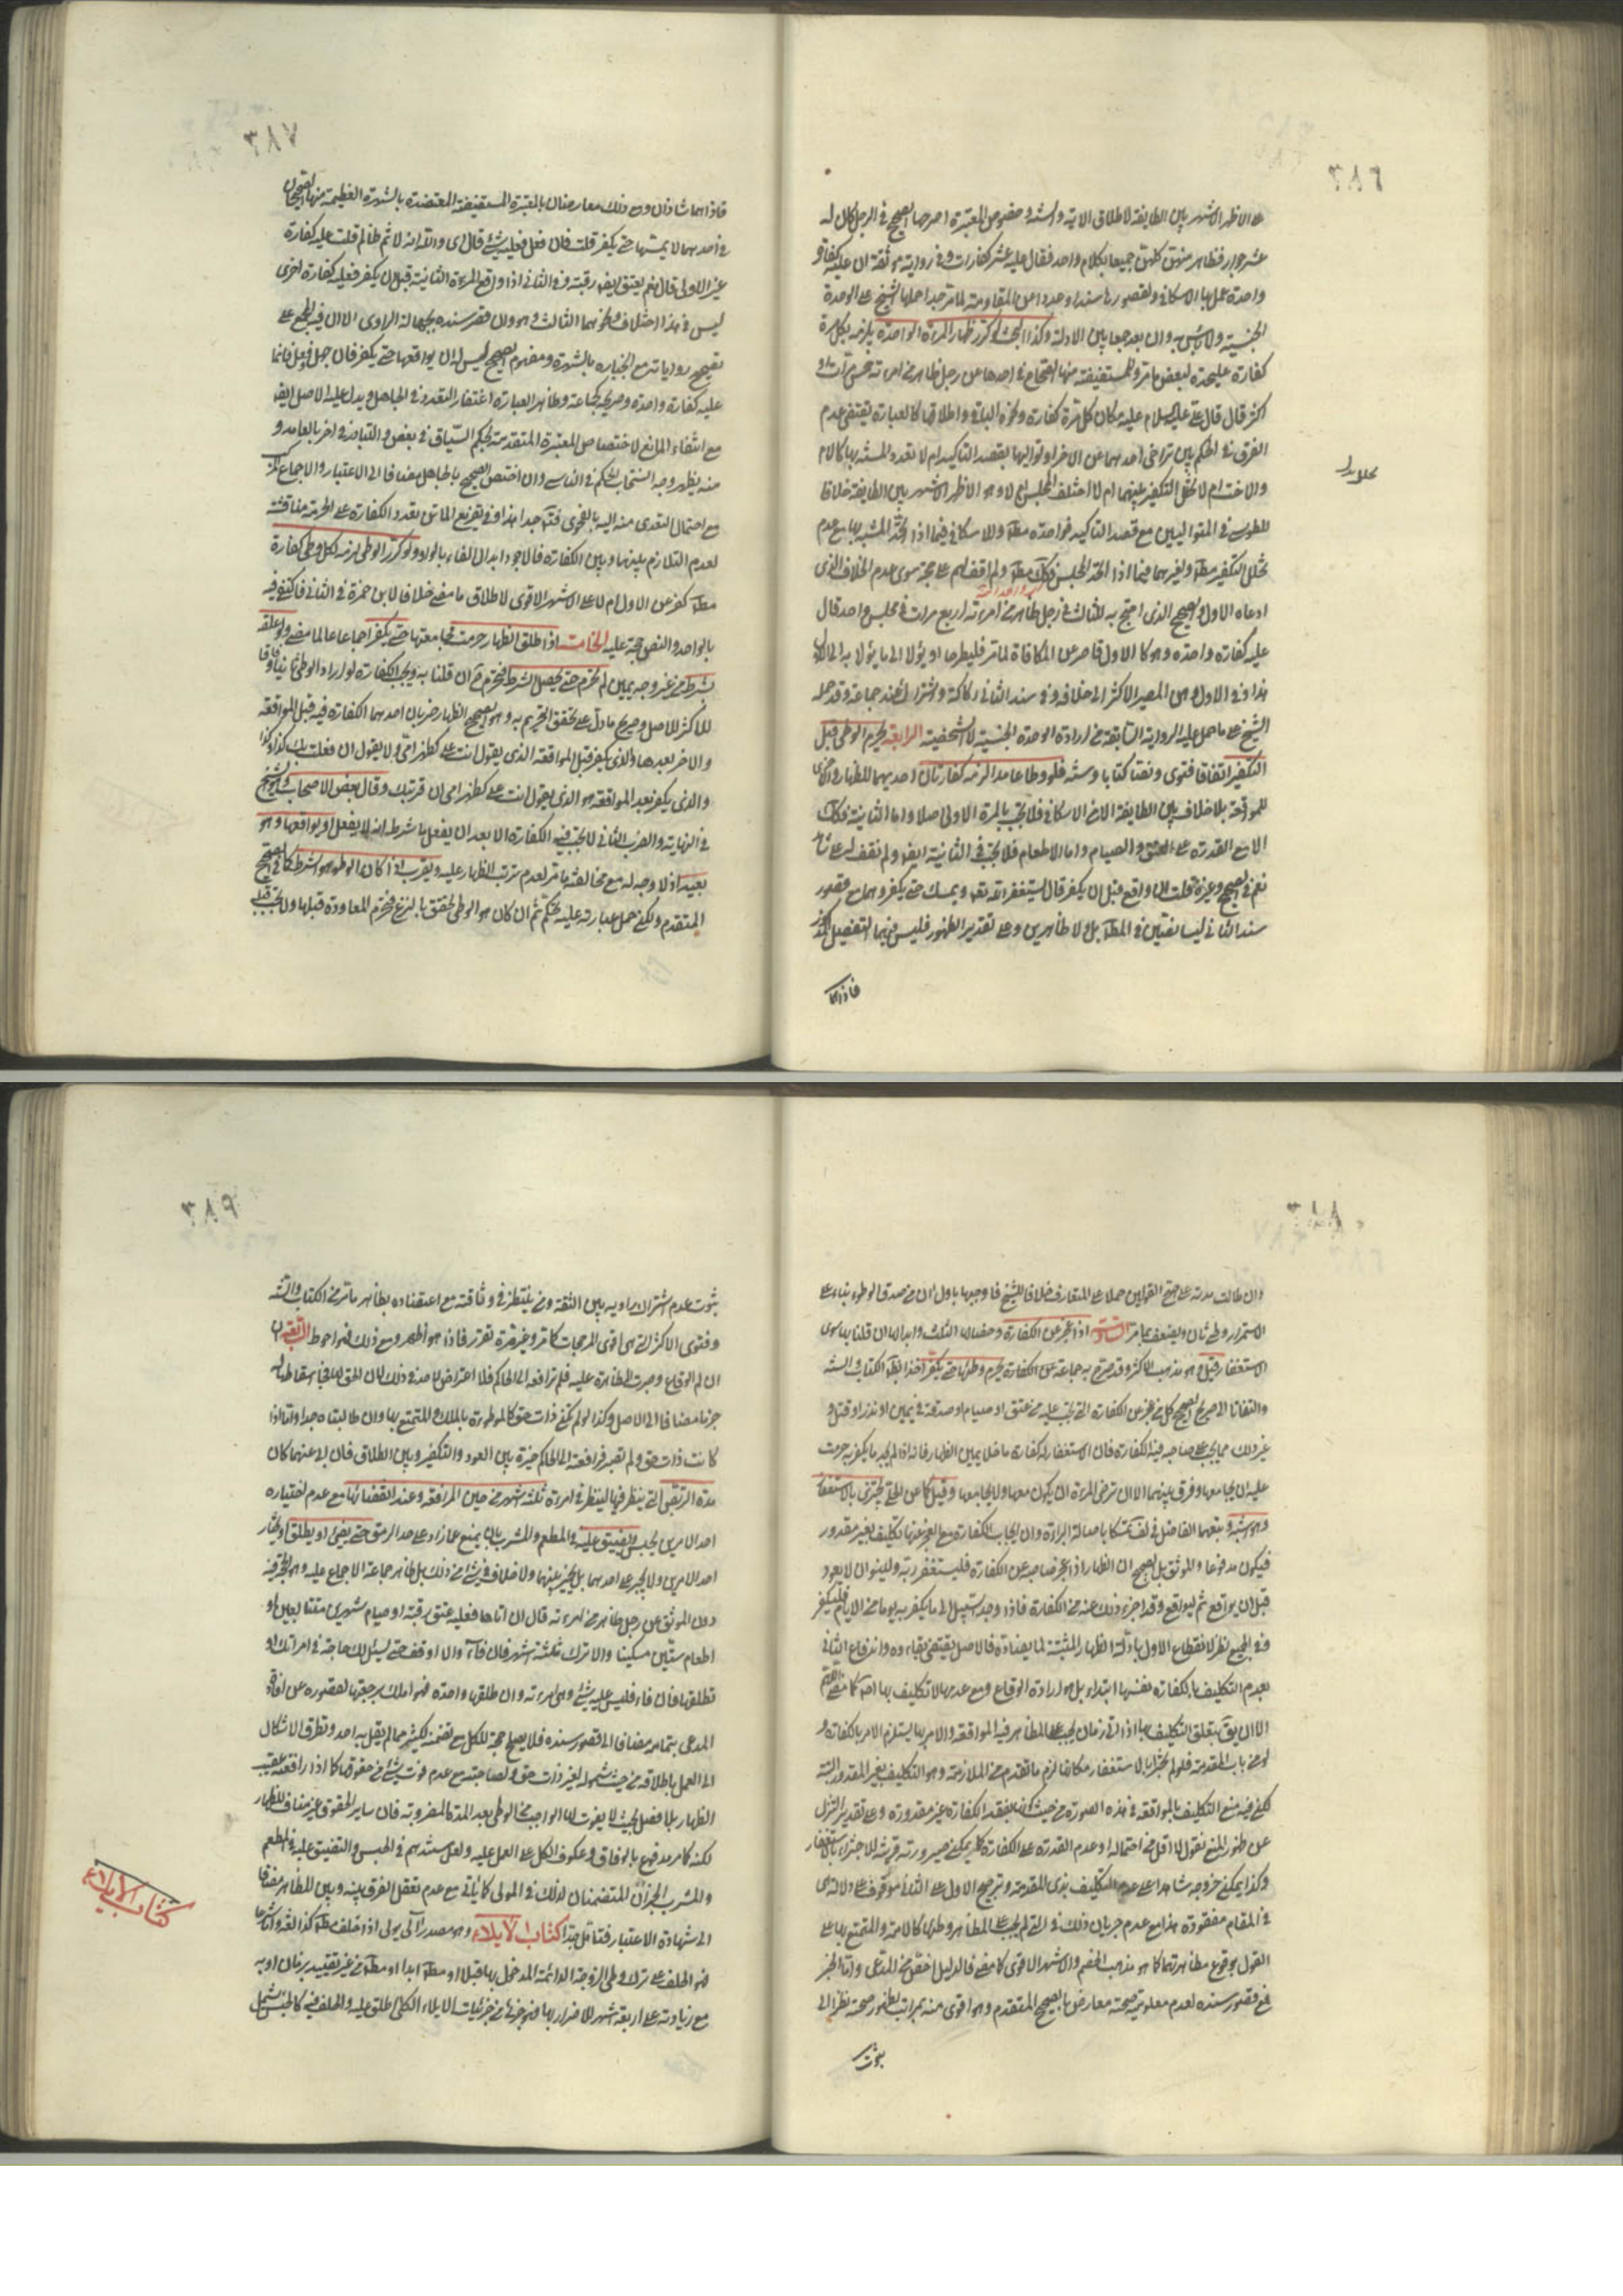 على الاظهر الاشهر بين الطايفة لاطلاق الاية والسنة وخصوص المعتبرة اصرحها الصحيح في الرجل كان له
عشر جوار فظاهر منهن كلهن جميعا بكلام واحد فقال عليه عشر كفارات وفي رواية موثقة ان عليه كفارة
واحدة عمل بها الاسكافي ولقصورها سندا وعددا عن المقاومة لما مر جدا حملها الشيخ على الوحدة
الجنسية ولا باس به وان بعد جمعا بين الادلة وكذا البحث لو كرر ظهار المرءة الواحدة يلزمه بكل مرة
كفارة عليحدة لبعض ما مر وللمستفيضة منها الصحاح في احدها عن رجل ظاهر من امرءته خمس مرات او
اكثر قال قال علي عليه السلام عليه مكان كل مرة كفارة ونحوه الباقي واطلاقها كالعبارة يقتضي عدم
الفرق في الحكم بين تراخي احدهما عن الاخر او تواليهما بقصد التاكيد ام لا تعدد المشبه بها كالام
والاخت ام لا تخلل التكفير بينهما ام لا اختلف المجلس ام لا وهو الاظهر الاشهر بين الطايفة خلافا
للطوسي في المتواليين مع قصد التاكيد فواحدة مطلقا وللاسكافي فيما اذا اتحد المشبه بها مع عدم
تخلل التكفير مطلقا ولغيرهما فيما اذا اتحد المجلس فكك مطلقا ولم اقف لهم على حجة سوى عدم الخلاف الذي
ادعاه الاول والصحيح الذي احتج به للثالث في رجل ظاهر من امرءته اربع مرات في مجلس واحد قال
عليه كفارة واحدة وهو كالاول قاصر عن المكافاة لما مر فليطرحا او يؤلا الى ما يؤلا به الى الاول
هذا وفي الاول وهن المصير الاكثر الى خلافه وفي سند الثاني ركاكة واشتراك عند جماعة وقد حمله
الشيخ على ما حمل عليه الرواية السابقة من ارادة الوحدة الجنسية لا الشخصية الرابعة يحرم الوطي قبل
التكفير اتفاقا فتوى ونصا كتابا وسنة فلو وطا عامدا لزمه كفارتان احديهما للظهار والاخرى
للمواقعة بلا خلاف بين الطايفة الا من الاسكافي فلا تجب بالمرة الاولى اصلا واما الثانية فكك
الا مع القدرة على العتق والصيام واما الاطعام فلا تجب في الثانية ايضا ولم نقف له على شاهد
نعم في الصحيح وغيره قلت ان واقع قبل ان يكفر قال يستغفر الله تعالى ويمسك حتى يكفر وهما مع قصور
سند الثاني ليسا نصين في المطلب بل ولا ظاهرين وعلى تقدير الظهور فليس فيهما التفصيل المذكور
فاذا هما
فاذا هما شاذان ومع ذلك معارضان بالمعتبرة المستفيضة المعتضدة بالشهرة العظيمة منها الصحيحان
في احدهما لا يمسها حتى يكفر قلت فان فعل فعليه شئ قال اي والله انه لاثم ظالم قلت عليه كفارة
غير الاولى قال نعم يعتق ايضا رقبة وفي الثاني اذا واقع المرءة الثانية قبل ان يكفر فعليه كفارة اخرى
ليس في هذا اختلاف ونحوهما الثالث وهو وان قصر سنده بجهالة الراوي الا ان فيمن اجمع على
تصحيح رواياته مع انجباره بالشهرة ومفهوم الصحيح ليس له ان يواقعها حتى يكفر فان جهل وفعل فانما
عليه كفارة واحدة وصريحه كجماعة وظاهر العبارة اغتفار التعدد في الجاهل ويدل عليه الاصل ايضا
مع انتفاء المانع لاختصاص المعتبرة المتقدمة بحكم السياق في بعض والتبادر في اخر بالعامد و
منه يظهر وجه انسحاب الحكم في الناسي وان اختص الصحيح بالجاهل مضافا الى الاعتبار والاجماع
مع احتمال التعدي منه اليه بالفحوى فتامل جدا هذا وفي تفريع الماتن تعدد الكفارة على الحرمة مناقشة
لعدم التلازم بينها وبين الكفارة فالاجود ابدال الفاء بالواو ولو كرر الوطي لزمه لكل وطي كفارة
مطلقا كفر عن الاول ام لا على الاشهر الاقوى لاطلاق ما مضى خلافا لابن حمزة في الثاني فاكتفى فيه
بالواحد والنص حجة عليه الخامسة اذا اطلق الظهار حرمت مجامعتها حتى يكفر اجماعا لما مضى ولو علقه
بشرط من غير وجه يمين لم تحرم حتى يحصل الشرط فتحرم ح ان قلنا به ويجب الكفارة لو اراد الوطي ثانيا وفاقا
للاكثر للاصل وصريح ما دل على تحقق التحريم به وهو الصحيح الظهار ضربان احدهما الكفارة فيه قبل المواقعة
والاخر بعدها والذي يكفر قبل المواقعة الذي يقول انت علي كظهر امي ولا يقول ان فعلت بك كذا وكذا
والذي يكفر بعد المواقعة هو الذي يقول انت علي كظهر امي ان قربتك وقال بعض الاصحاب وهو الشيخ
في النهاية والضرب الثاني لا تجب فيه الكفارة الا بعد ان يفعل ما شرط انه لا يفعل او يواقعها وهو
بعيد اذ لا وجه له مع مخالفته ما مر لعدم ترتب الظهار عليه ويقرب اذا كان الوطي هو الشرط كما في الصحيح
المتقدم ولكن حمل عبارته عليه تحكم ثم ان كان هو الوطي تحقق بالنزع فتحرم المعاودة قبلها ولا تجب قبله
وان طالت مدته على اصح القولين حملا على المتعارف خلافا للشيخ فاوجبها باول ان من صدق الوطي بناء على
الاستمرار وطي ثان ويضعف بما مر السادسة اذا عجز عن الكفارة وخصالها الثلث وابدالها ان قلنا بها سوى
الاستغفار قيل وهو مذهب الاكثر وقد صرح به جماعة عن الكفارة يحرم وطؤها حتى يكفر اخذا بظاهر الكتاب والسنة
والتفاتا الى صريح الصحيح كل من عجز عن الكفارة التي تجب عليه من عتق او صيام او صدقة في يمين او نذر او قتل و
غير ذلك مما يجب على صاحبه فيه الكفارة فان الاستغفار له كفارة ما خلا يمين الظهار فانه اذا لم يجد ما يكفر به حرمت
عليه ان يجامعها وفرق بينهما الا ان ترضى المرءة ان يكون معها ولا يجامعها وقيل كما عن الحلي يجتزئ بالاستغفار
وهو اشبه وتبعهما الفاضل في لف تمسكا باصالة البراءة وان ايجاب الكفارة مع العجز عنها تكليف بغير مقدور
فيكون مدفوعا والموثق بل الصحيح ان الظهار اذا عجز صاحبه عن الكفارة فليستغفر ربه ولينو ان لا يعود
قبل ان يواقع ثم ليواقع وقد اجزء ذلك عنه من الكفارة فاذا وجد السبيل الى ما يكفر به يوما من الايام فليكفر
وفي الجميع نظر لانقطاع الاول بادلة الظهار المثبتة لما يضاده فالاصل يقتضي بقاءه واندفاع الثاني
بعدم التكليف بالكفارة نفسها ابتداء بل هو ارادة الوقاع ومع عدمها لا تكليف بها اصلا كما مضى
الا ان يق بتعلق التكليف بها اذا اتى زمان يجب على المظاهر فيه المواقعة والامر بها يستلزم الامر بالكفارة و
لو من باب المقدمة فلو لم يجتزء بالاستغفار مكانها لزم ما تقدم من الملازمة وهو التكليف بغير المقدور البتة
لكن فيه منع التكليف بالمواقعة في هذه الصورة من حيث كونها بفقد الكفارة غير مقدورة وعلى تقدير التنزل
عن ظهور المنع نقول لا اقل من احتماله او عدم القدرة على الكفارة كما يمكن صيرورته قرينة للاجتزاء بالاستغفار
وكذا يمكن خروجه شاهدا على عدم التكليف بذي المقدمة وترجيح الاول على الثاني موقوف على دلالة هي
في المقام مفقودة هذا مع عدم جريان ذلك في التي لم يجب على المظاهر وطئها كالامة والمتمتع بها على
القول بوقوع مظاهرتهما كما هو مذهب الخصم والاشهر الاقوى كما مضى فالدليل اخص من المدعى واما الخبر
فمع قصور سنده لعدم معلومية صحته معارض بالصحيح المتقدم وهو اقوى منه بمراتب لظهور صحته نظرا الى
ثبوت
ثبوت عدم اشتراك راويه بين الثقة ومن ينتظر في وثاقته مع اعتضاده بظاهر ما مر من الكتاب والسنة
وفتوى الاكثر التي هي اقوى المرجحات كما مر وغير مرة تقرر فاذا هو اظهر ومع ذلك فهو احوط السابعة
ان لم الوقاع وصبرت المظاهرة عليه فلم ترافعه الى الحاكم فلا اعتراض لاحد في ذلك لان الحق لها فجاز اسقاطها له
جزما مضافا الى الاصل وكذا لو لم تكن ذات حق كالموطوءة بالملك والمتمتع بها وان طالبتاه جدا واما اذا
كانت ذات حق ولم تصبر فرافعته الى الحاكم خيره بين العود والتكفير وبين الطلاق فان ابى عنهما كان
مدة التربص التي ينظر فيها لينظر في امره ثلثة اشهر من حين المرافعة وعند انقضائها مع عدم اختياره
احد الامرين يحبس ويضيق عليه في المطعم والمشرب بان يمنع عما زاد على سد الرمق حتى يفئ او يطلق او يختار
احد الامرين ولا يجبر على احدهما بل يخير بينهما ولا خلاف في شئ من ذلك بل ظاهر جماعة الاجماع عليه وهو الحجة فيه
دون الموثق عن رجل ظاهر من امرءته قال ان اتاها فعليه عتق رقبة او صيام شهرين متتابعين او
اطعام ستين مسكينا والا ترك ثلثة اشهر فان فاء والا اوقف حتى يسئل لك حاجة في امراتك او
تطلقها فان فاء فليس عليه شئ وهي امرءته وان طلقها واحدة فهو املك برجعتها لقصوره عن افادة
المدعى بتمامه مضافا الى قصور سنده فلا يصلح حجة للكل مع تضمنه لكثير مما لم يقل به احد وتطرق الاشكال
الى العمل باطلاقه من حيث شموله لغير ذات حق ولصاحبته مع عدم فوت شئ من حقوقها كما اذا رافعته عقيب
الظهار بلا فصل بحيث لا يفوت لها الواجب من الوطي بعد المدة المضروبة فان ساير الحقوق غير مناف للظهار
لكنه كما مر مدفوع بالوفاق وعكوف الكل على العمل عليه ولعل مستندهم في الحبس والتضييق عليه في المطعم
والمشرب الخبران المتضمنان لذلك في المولى كما ياتي مع عدم تعقل الفرق بينه وبين المظاهر مضافا
الى شهادة الاعتبار فتامل جدا كتاب الايلاء وهو مصدر آلى يولي اذا حلف مطلقا كذا لغة واما شرعا
فهو الحلف على ترك وطي الزوجة الدائمة المدخول بها قبلا او مطلقا ابدا او مطلقا من غير تقييد بزمان او به
مع زيادته على اربعة اشهر للاضرار بها فهو جزئي من جزئيات الايلاء الكلي اطلق عليه والحلف فيه كالجنس يشمل
كتاب الايلاء